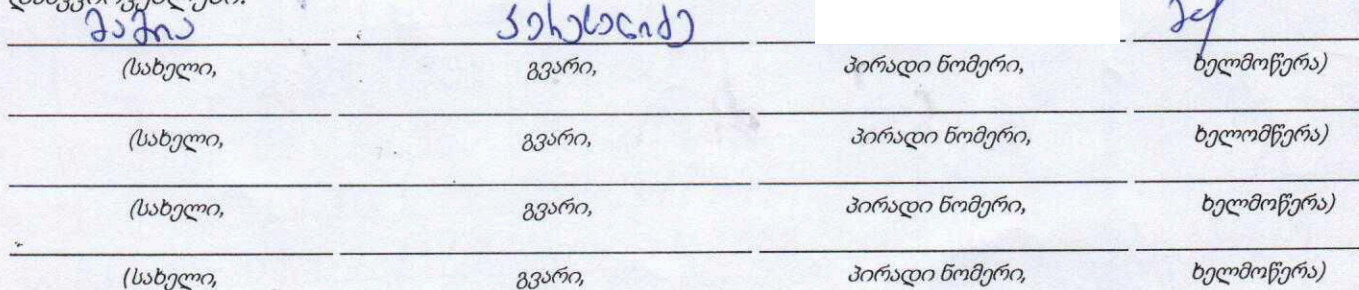 მამია კერესელიძე
(სახელი, გვარი, პირადი ნომერი, ხელმოწერა)
(სახელი, გვარი, პირადი ნომერი, ხელომწერა)
(სახელი, გვარი, პირადი ნომერი, ხელმოწერა)
(სახელი, გვარი, პირადი ნომერი, ხელმოწერა)